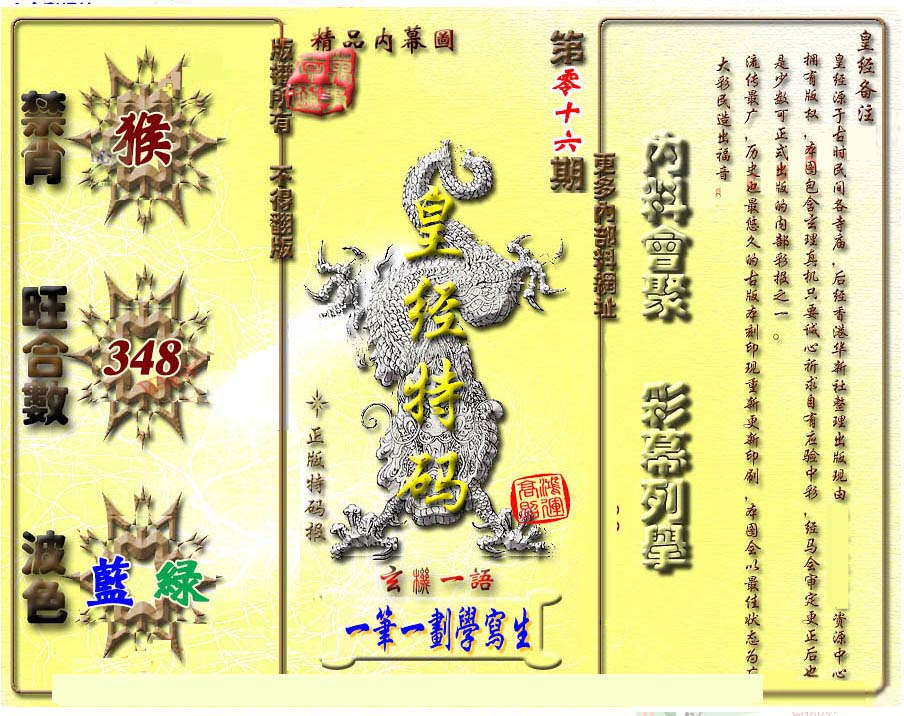 精品內幕圖
第零十六期
版權所有 不得翻版
更多內部料網址
禁肖
猴
旺合數
348
波色
藍 緑
皇经特码
正版特码报
鴻運高照
玄機一語
一筆一劃學寫生
內料會聚
彩幕列舉
皇经备注
皇经源于古时民间各寺庙，后经香港华新社整理出版现由 资源中心
拥有版权，本图包含玄理真机只要诚心祈求自有应验中彩，经马会审定更正后也
是少数可正式出版的内部彩报之一。
流传最广，历史也最悠久的古版本刻印现重新更新印刷，本图会以最佳状态为广
大彩民造出福音